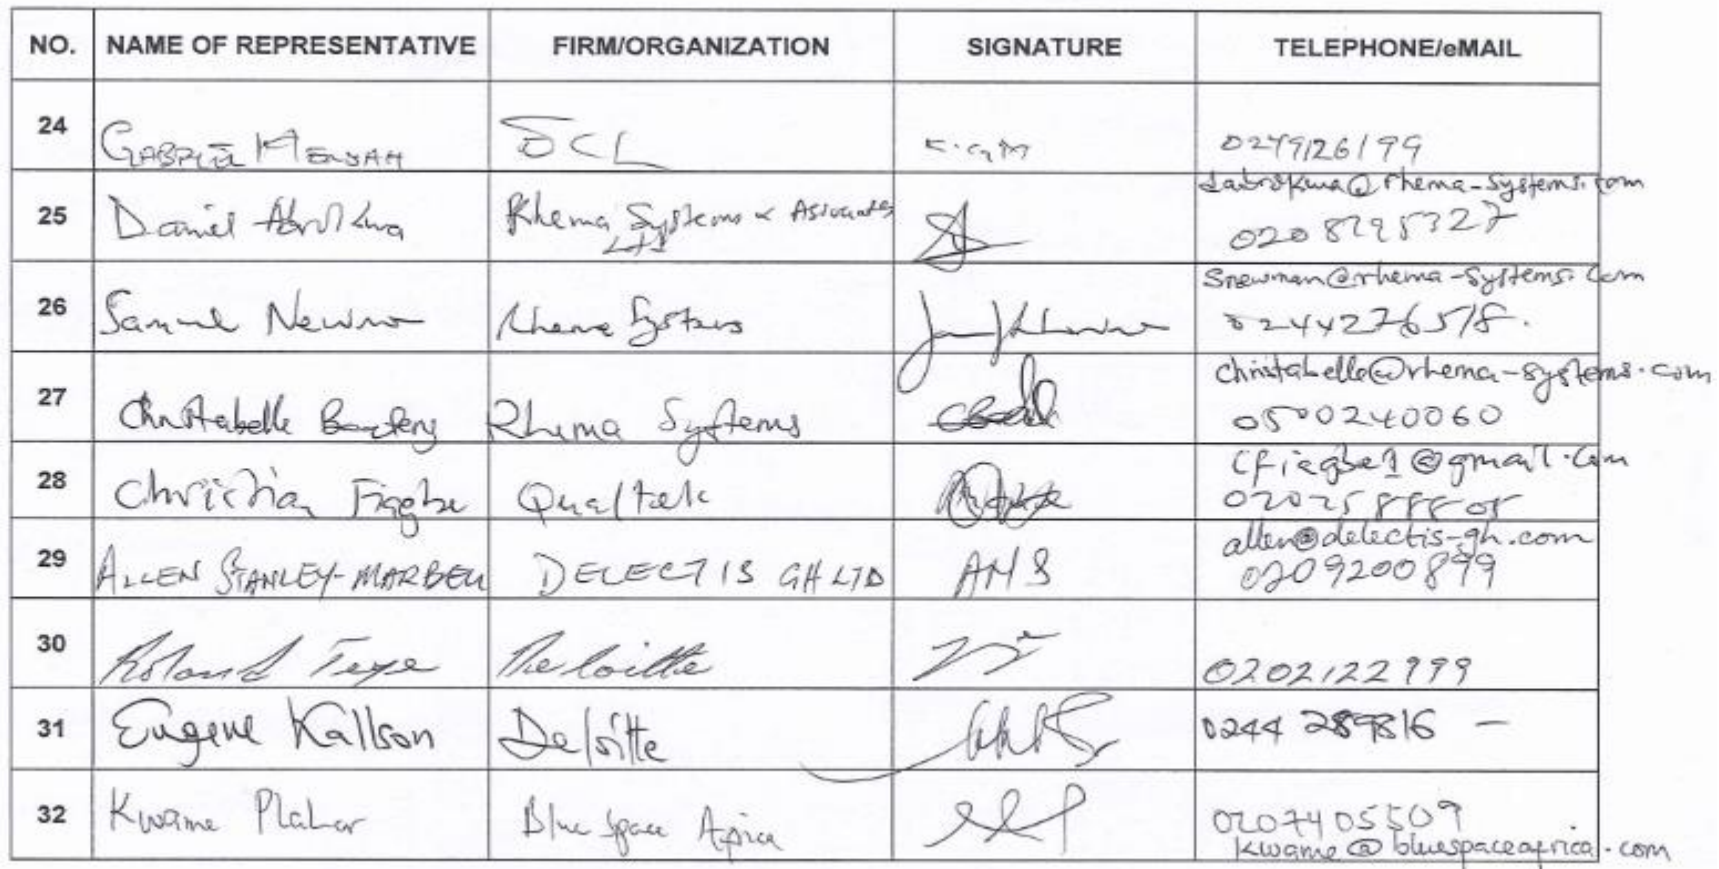 NO. NAME OF REPRESENTATIVE FIRM/ORGANIZATION SIGNATURE TELEPHONE/eMAIL
24 GABRIEL MENSAH SCL 0249126199
25 Daniel Abrokwa Rhema Systems & Associates Ltd dabrokwa@rhema-systems.com
26 Samuel Newman Rhema Systems snewman@rhema-systems.com
0244276518.
27 Christabelle Rhema Systems christabelle@rhema-systems.com
0500240060
28 Christian Fiagbe Qualtek cfiagbe1@gmail.com
29 ALLEN STANLEY-MARBELL DELECTIS GH LTD AMS allen@delectis-gh.com
0209200899
30 Roland Teye Deloitte 0202122999
31 Eugene Kallson Deloitte 0244 289816 -
32 Kwame Plahar Blue Space Africa 0207405509
kwame@bluespaceafrica.com